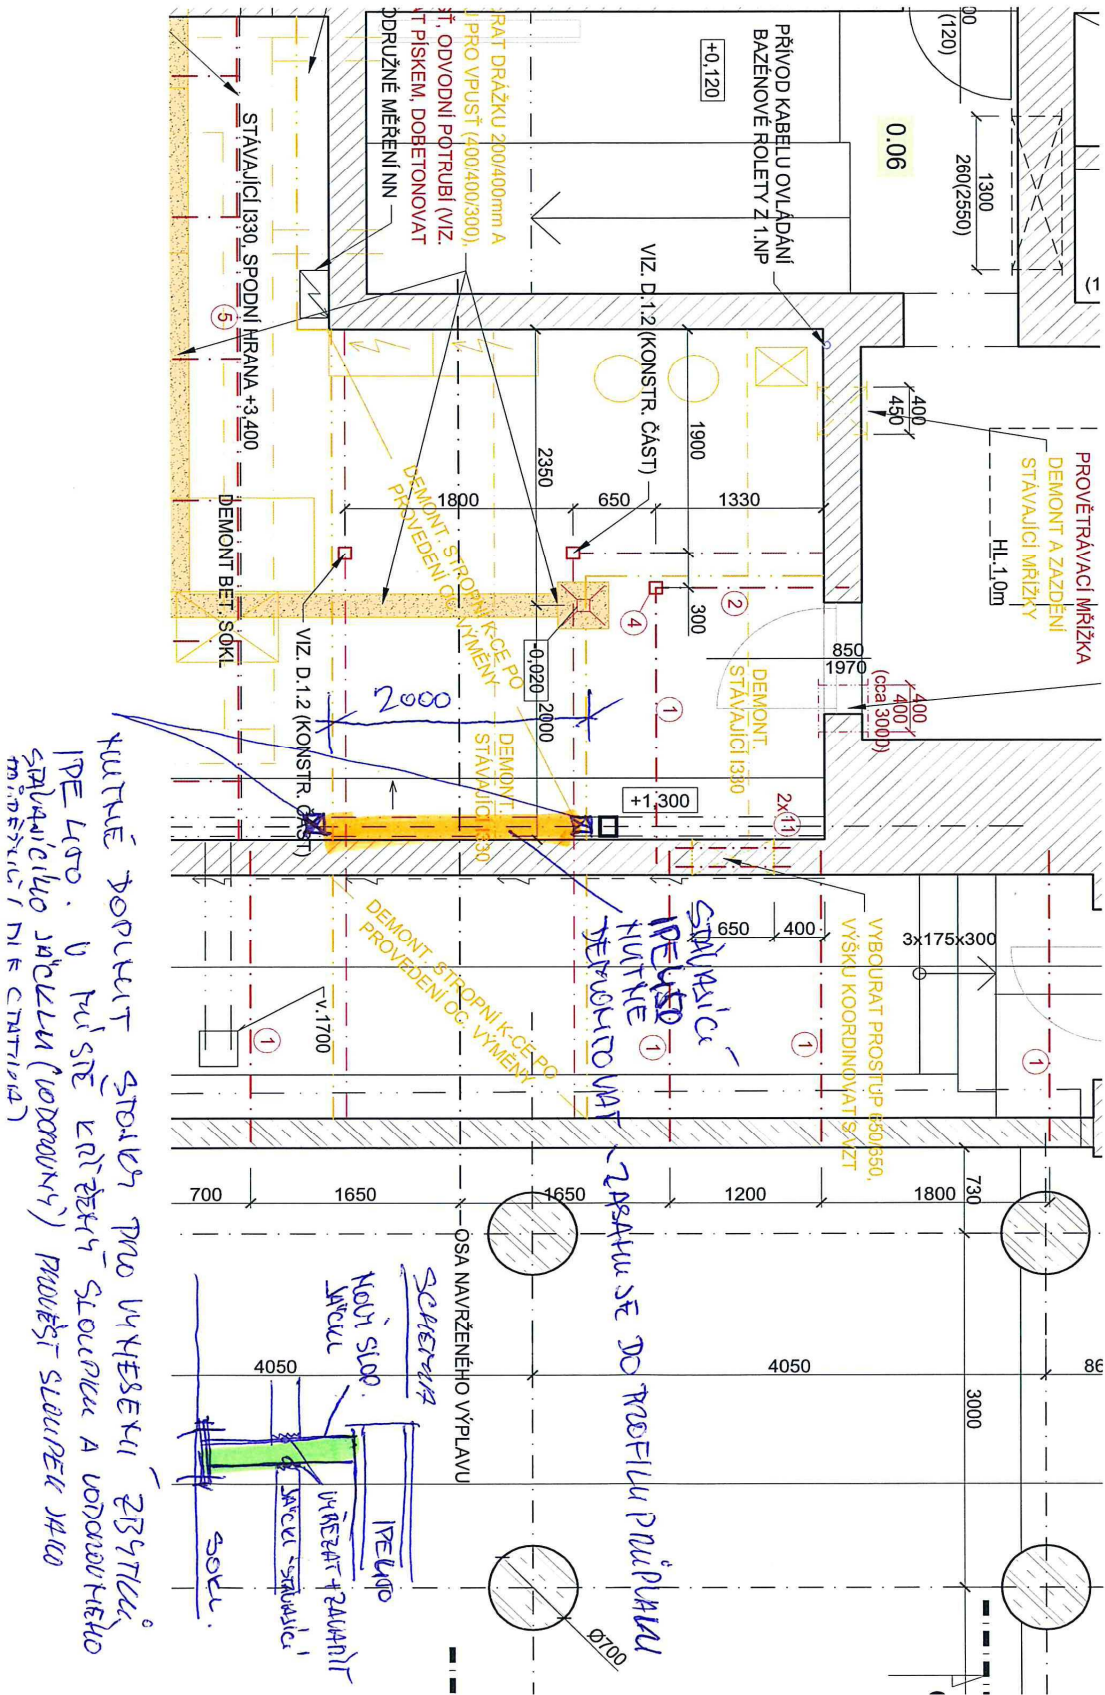 00
(120)
1300
260(2550)
(1
0.06
PŘÍVOD KABELU OVLÁDÁNÍ
BAZÉNOVÉ ROLETY Z 1.NP
+0,120
RAT DRÁŽKU 200/400mm A
PRO VPUSŤ (400/400/300),
ŠŤ, ODVODNÍ POTRUBÍ (VIZ.
T PÍSKEM, DOBETONOVAT
ODRUŽNÉ MĚŘENÍ NN
STÁVAJÍCÍ I330, SPODNÍ HRANA +3,400
5
VIZ. D.1.2 (KONSTR. ČÁST)
1900
2350
400
450
PROVĚTRÁVACÍ MŘÍŽKA
DEMONT A ZAZDĚNÍ
STÁVAJÍCÍ MŘÍŽKY
HL.1,0m
1800
650
1330
DEMONT BET. SOKL
DEMONT. STROPNÍ K-CE PO
PROVEDENÍ OC. VÝMĚNY
2
4
300
850
1970
400
400
(cca 3000)
-0,020
2000
2000
1
DEMONT
STÁVAJÍCÍ I330
DEMONT.
STÁVAJÍCÍ I330
VIZ. D.1.2 (KONSTR. ČÁST)
+1,300
2x11
650
400
VYBOURAT PROSTUP 650/650,
VÝŠKU KOORDINOVAT S VZT
3x175x300
DEMONT. STROPNÍ K-CE PO
PROVEDENÍ OC. VÝMĚNY
v.1700
1
1
1
1
STÁVAJÍCÍ
NUTNÉ
DEMONTOVAT - ZASAHUJE DO PROFILU PRŮPLAVU
700
1650
1650
1200
1800
730
OSA NAVRŽENÉHO VÝPLAVU
4050
4050
86
3000
Ø700
NUTNÉ DOPLNIT STOJKY PRO VYNESENÍ ZBYTKŮ
IPE 400. V MÍSTĚ KŘÍŽENÍ SLOUPKU A VODOROVNÉHO
STÁVAJÍCÍHO JÄCKLU (VODOROVNÝ) PROVÉST SLOUPEK JAKO
SCHEMA
NOVÝ SLOUP.
JÄCKL
IPE400
VYŘEZAT + ZAVAŘIT
JÄCKL - STÁVAJÍCÍ
SOKL.